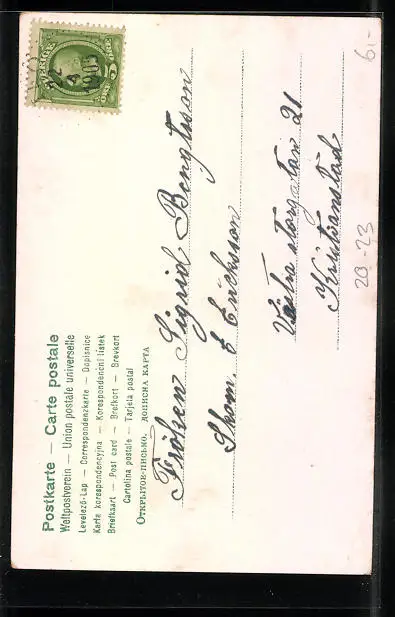 Postkarte — Carte postale
Weltpostverein — Union postale universelle
Levelező-Lap — Correspondenzkarte — Dopisnice
Karta korespondencyjna — Korespondenční lístek
Briefkaart — Post card — Brefkort — Brevkort
Cartolina postale — Tarjeta postal
Открытое письмо. Дописна карта
SVERIGE
5
1903
Fröken Sigrid Bengtsson
Skom. E Ericksson
Västra storgatan 21
Kristianstad
20-23
6,-